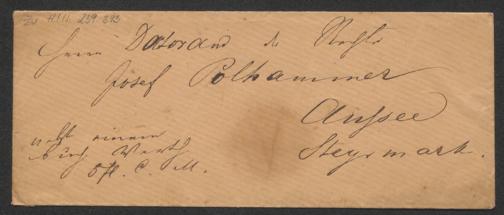 Zu H.I.N. 239.393
Herrn Doctorand der Rechte
Josef Polhammer
Aussee
Steyrmark.
nebst einem
Buch Werth
5 fl. C. M.